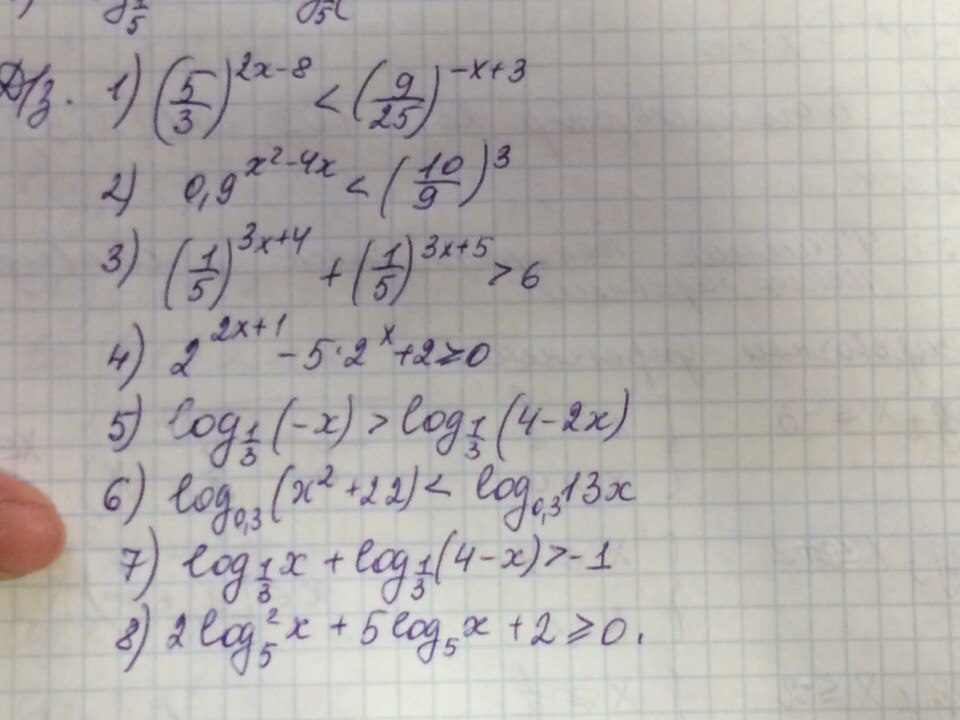 Д/з. 1) (5/3)^{2x-8} < (9/25)^{-x+3}
2) 0,9^{x²-4x} < (10/9)^3
3) (1/5)^{3x+4} + (1/5)^{3x+5} > 6
4) 2^{2x+1} - 5·2^x + 2 ≥ 0
5) log_{1/3}(-x) > log_{1/3}(4-2x)
6) log_{0,3}(x²+22) < log_{0,3}13x
7) log_{1/3}x + log_{1/3}(4-x) > -1
8) 2log²_5 x + 5log_5 x + 2 ≥ 0.